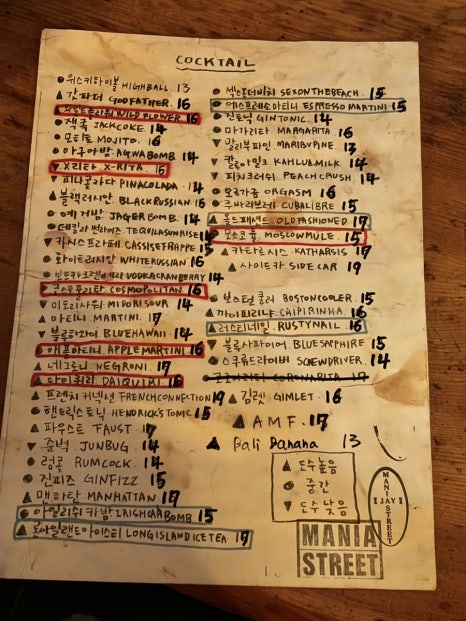 COCKTAIL
● 위스키하이볼 HIGHBALL 13
▲ 갓파더 GODFATHER. 16
WILD FLOWER 16
● 잭콕 JACKCOKE 14
● 모히또 MOJITO. 16
● 아구아밤 AGWA BOMB 14
▼ X리타 X-RITA. 15
▼ 피나콜라다 PINACOLADA. 14
▲ 블랙러시안 BLACK RUSSIAN 16
● 예거밤 JAGER BOMB. 14
● 데킬라 썬라이즈 TEQUILA SUNRISE 14
▼ 카시스프라페 CASSISEFRAPPE 15
▲ 화이트러시안 WHITE RUSSIAN 16
● 보드카크랜베리 VODKA CRANBERRY 14
COSMOPOLITAN 16
▼ 미도리사워 MIDORI SOUR 14
▲ 마티니 MARTINI. 17
▼ 블루하와이 BLUE HAWAII 14
● 애플마티니 APPLE MARTINI. 16
▲ 네그로니 NEGRONI. 17
▲ 다이퀴리 DAIQUIRI 16
▲ 프렌치 커넥션 FRENCH CONNECTION 19
● 핸드릭스토닉. HENDRICK'S TONIC 15
▲ 파우스트 FAUST. 17
▼ 준벅. JUNBUG. 14
● 럼콕 RUMCOCK. 14
● 진피즈 GINFIZZ 15
▲ 맨하탄 MANHATTAN 17
● 아일리쉬 카밤 IRISH CAR BOMB 15
▲ 롱아일랜드아이스티 LONG ISLAND ICE TEA 17
● 섹스온더비치 SEX ON THE BEACH. 15
● 에스프레소마티니 ESPRESSO MARTINI 15
● 진토닉 GIN TONIC. 14
● 마가리타 MARGARITA 16
▼ 말리부파인 MALIBU PINE. 13
▼ 칼루아밀크 KAHLUA MILK. 14
▼ 피치크러쉬 PEACH CRUSH 14
● 오르가즘 ORGASM 16
● 쿠바리브레 CUBA LIBRE 15
▲ 올드패션드 OLD FASHIONED 17
● 모스코뮬. MOSCOW MULE. 15
▲ 카타르시스 KATHARSIS 17
▲ 사이드카 SIDE CAR 19
● 보스턴쿨러 BOSTON COOLER. 15
▲ 까이피리냐 CAIPIRINHA 16
▲ 러스티네일. RUSTY NAIL 16
▼ 블루사파이어. BLUE SAPPHIRE 15
● 스쿠류드라이버 SCREWDRIVER 14
CORONA RITA 17
▲ 김렛 GIMLET. 16
▲ AMF. 17
▲ Bali Banana 13
▲ 도수높음
● 중간
▼ 도수낮음
MANIA
STREET
MANIA
JAY
STREET